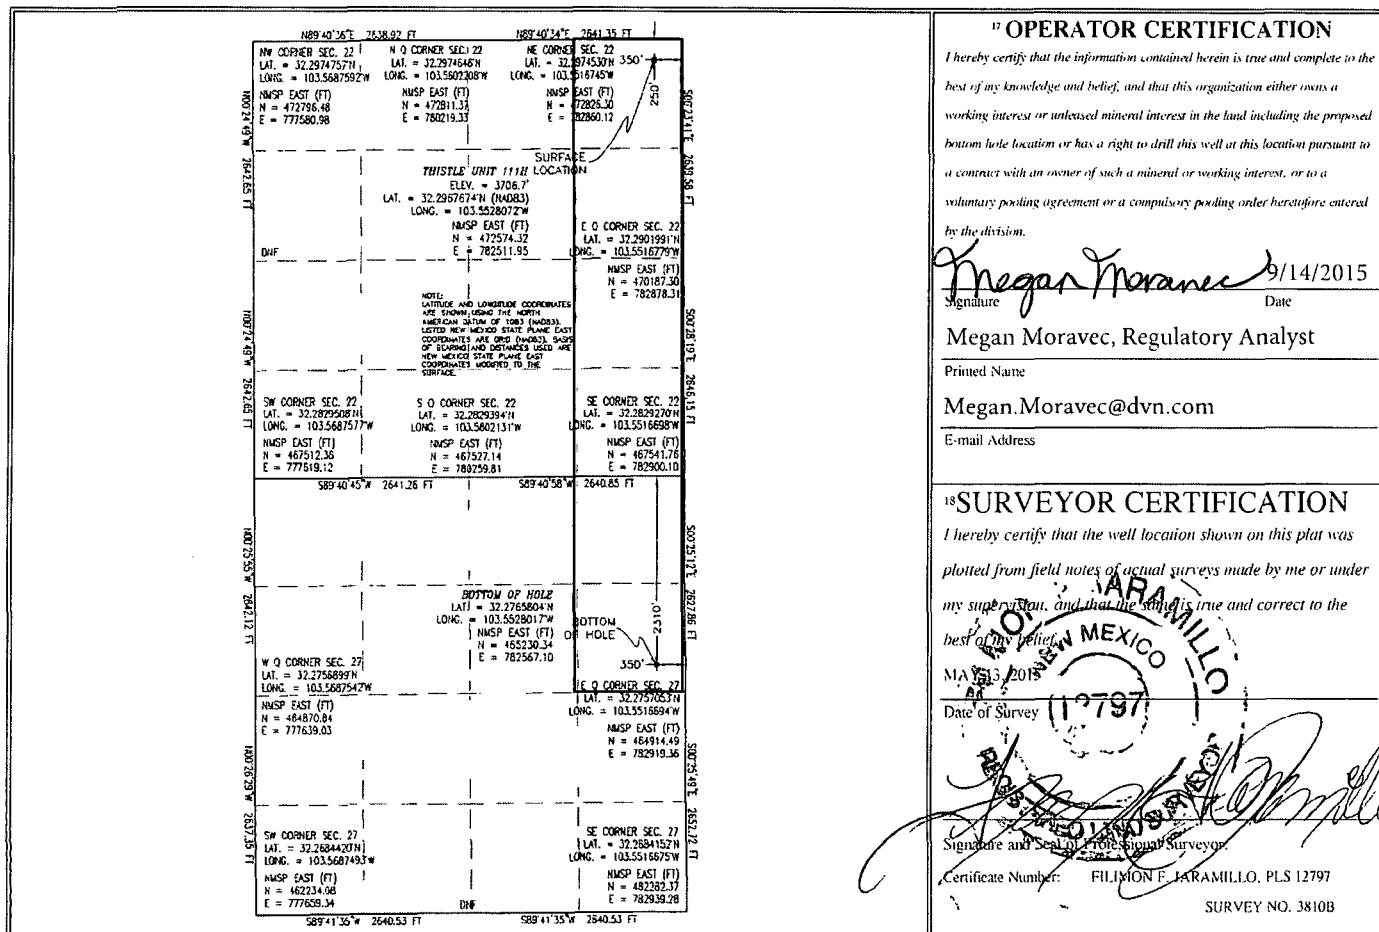 N89°40'36"E 2638.92 FT
N89°40'34"E 2641.35 FT
NW CORNER SEC. 22
LAT. = 32.2974757'N
LONG. = 103.5687592'W
NMSP EAST (FT)
N = 472796.48
E = 777580.98
N Q CORNER SEC. 22
LAT. = 32.2974646'N
LONG. = 103.5602208'W
NMSP EAST (FT)
N = 472811.37
E = 780219.33
NE CORNER SEC. 22
LAT. = 32.2974530'N
LONG. = 103.5516745'W
NMSP EAST (FT)
N = 472826.30
E = 782860.12
350'
250'
N00°24'49"W 2642.65 FT
S00°23'41"E 2639.58 FT
SURFACE
LOCATION
THISTLE UNIT 111H
ELEV. = 3706.7'
LAT. = 32.2967674'N (NAD83)
LONG. = 103.5528072'W
NMSP EAST (FT)
N = 472574.32
E = 782511.95
E Q CORNER SEC. 22
LAT. = 32.2901991'N
LONG. = 103.5516779'W
NMSP EAST (FT)
N = 470187.30
E = 782878.31
DNF
NOTE:
LATITUDE AND LONGITUDE COORDINATES
ARE SHOWN USING THE NORTH
AMERICAN DATUM OF 1983 (NAD83).
LISTED NEW MEXICO STATE PLANE EAST
COORDINATES ARE GRID (NAD83). BASIS
OF BEARING AND DISTANCES USED ARE
NEW MEXICO STATE PLANE EAST
COORDINATES MODIFIED TO THE
SURFACE.
N00°24'49"W 2642.65 FT
S00°28'19"E 2646.15 FT
SW CORNER SEC. 22
LAT. = 32.2829508'N
LONG. = 103.5687577'W
NMSP EAST (FT)
N = 467512.36
E = 777619.12
S Q CORNER SEC. 22
LAT. = 32.2829394'N
LONG. = 103.5602131'W
NMSP EAST (FT)
N = 467527.14
E = 780259.81
SE CORNER SEC. 22
LAT. = 32.2829270'N
LONG. = 103.5516698'W
NMSP EAST (FT)
N = 467541.76
E = 782900.10
S89°40'45"W 2641.26 FT
S89°40'58"W 2640.85 FT
N00°25'55"W 2642.12 FT
S00°25'12"E 2627.86 FT
BOTTOM OF HOLE
LAT. = 32.2765804'N
LONG. = 103.5528017'W
NMSP EAST (FT)
N = 465230.34
E = 782567.10
BOTTOM
OF HOLE
2310'
350'
W Q CORNER SEC. 27
LAT. = 32.2756899'N
LONG. = 103.5687542'W
NMSP EAST (FT)
N = 464870.84
E = 777639.03
E Q CORNER SEC. 27
LAT. = 32.2757053'N
LONG. = 103.5516694'W
NMSP EAST (FT)
N = 464914.49
E = 782919.36
N00°26'29"W 2637.35 FT
S00°25'49"E 2652.72 FT
SW CORNER SEC. 27
LAT. = 32.2684420'N
LONG. = 103.5687493'W
NMSP EAST (FT)
N = 462234.08
E = 777659.34
DNF
SE CORNER SEC. 27
LAT. = 32.2684152'N
LONG. = 103.5516675'W
NMSP EAST (FT)
N = 462262.37
E = 782939.28
S89°41'35"W 2640.53 FT
S89°41'35"W 2640.53 FT
17 OPERATOR CERTIFICATION
I hereby certify that the information contained herein is true and complete to the
best of my knowledge and belief, and that this organization either owns a
working interest or unleased mineral interest in the land including the proposed
bottom hole location or has a right to drill this well at this location pursuant to
a contract with an owner of such a mineral or working interest, or to a
voluntary pooling agreement or a compulsory pooling order heretofore entered
by the division.
Megan Moravec 9/14/2015
Signature Date
Megan Moravec, Regulatory Analyst
Printed Name
Megan.Moravec@dvn.com
E-mail Address
18 SURVEYOR CERTIFICATION
I hereby certify that the well location shown on this plat was
plotted from field notes of actual surveys made by me or under
my supervision, and that the same is true and correct to the
best of my belief.
MAY 13, 2015
Date of Survey
JARAMILLO
NEW MEXICO
12797
Signature and Seal of Professional Surveyor:
Certificate Number: FILIMON F. JARAMILLO, PLS 12797
SURVEY NO. 3810B